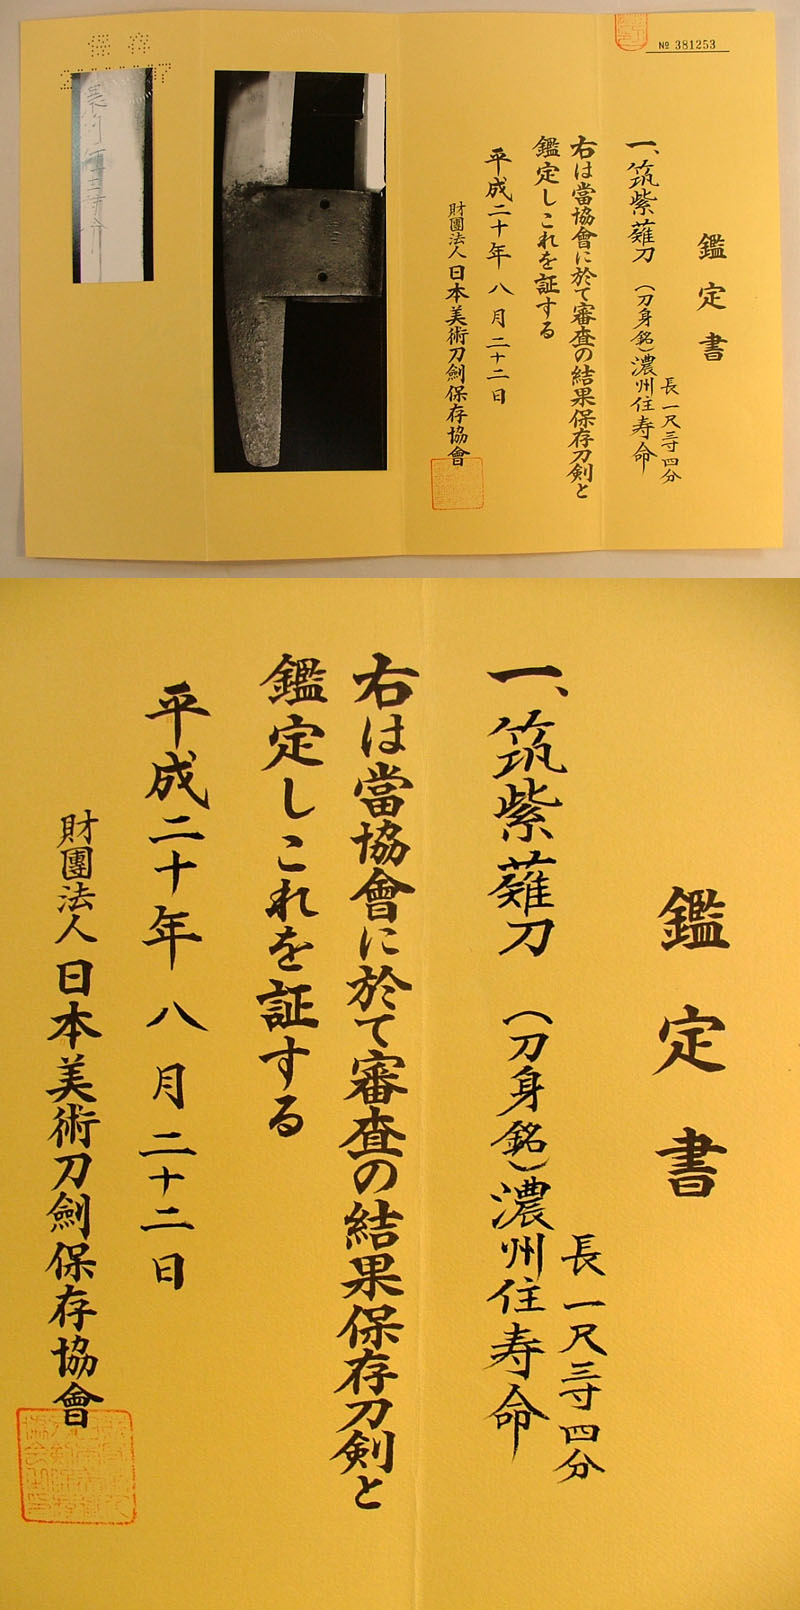 № 381253
鑑定書
一、筑紫薙刀 (刀身銘)濃州住寿命
長一尺三寸四分
右は當協會に於て審査の結果保存刀剣と
鑑定しこれを証する
平成二十年八月二十二日
財團法人日本美術刀劍保存協會
保存
濃州住寿命
鑑定書
一、筑紫薙刀 (刀身銘)濃州住寿命
長一尺三寸四分
右は當協會に於て審査の結果保存刀剣と
鑑定しこれを証する
平成二十年八月二十二日
財團法人日本美術刀劍保存協會